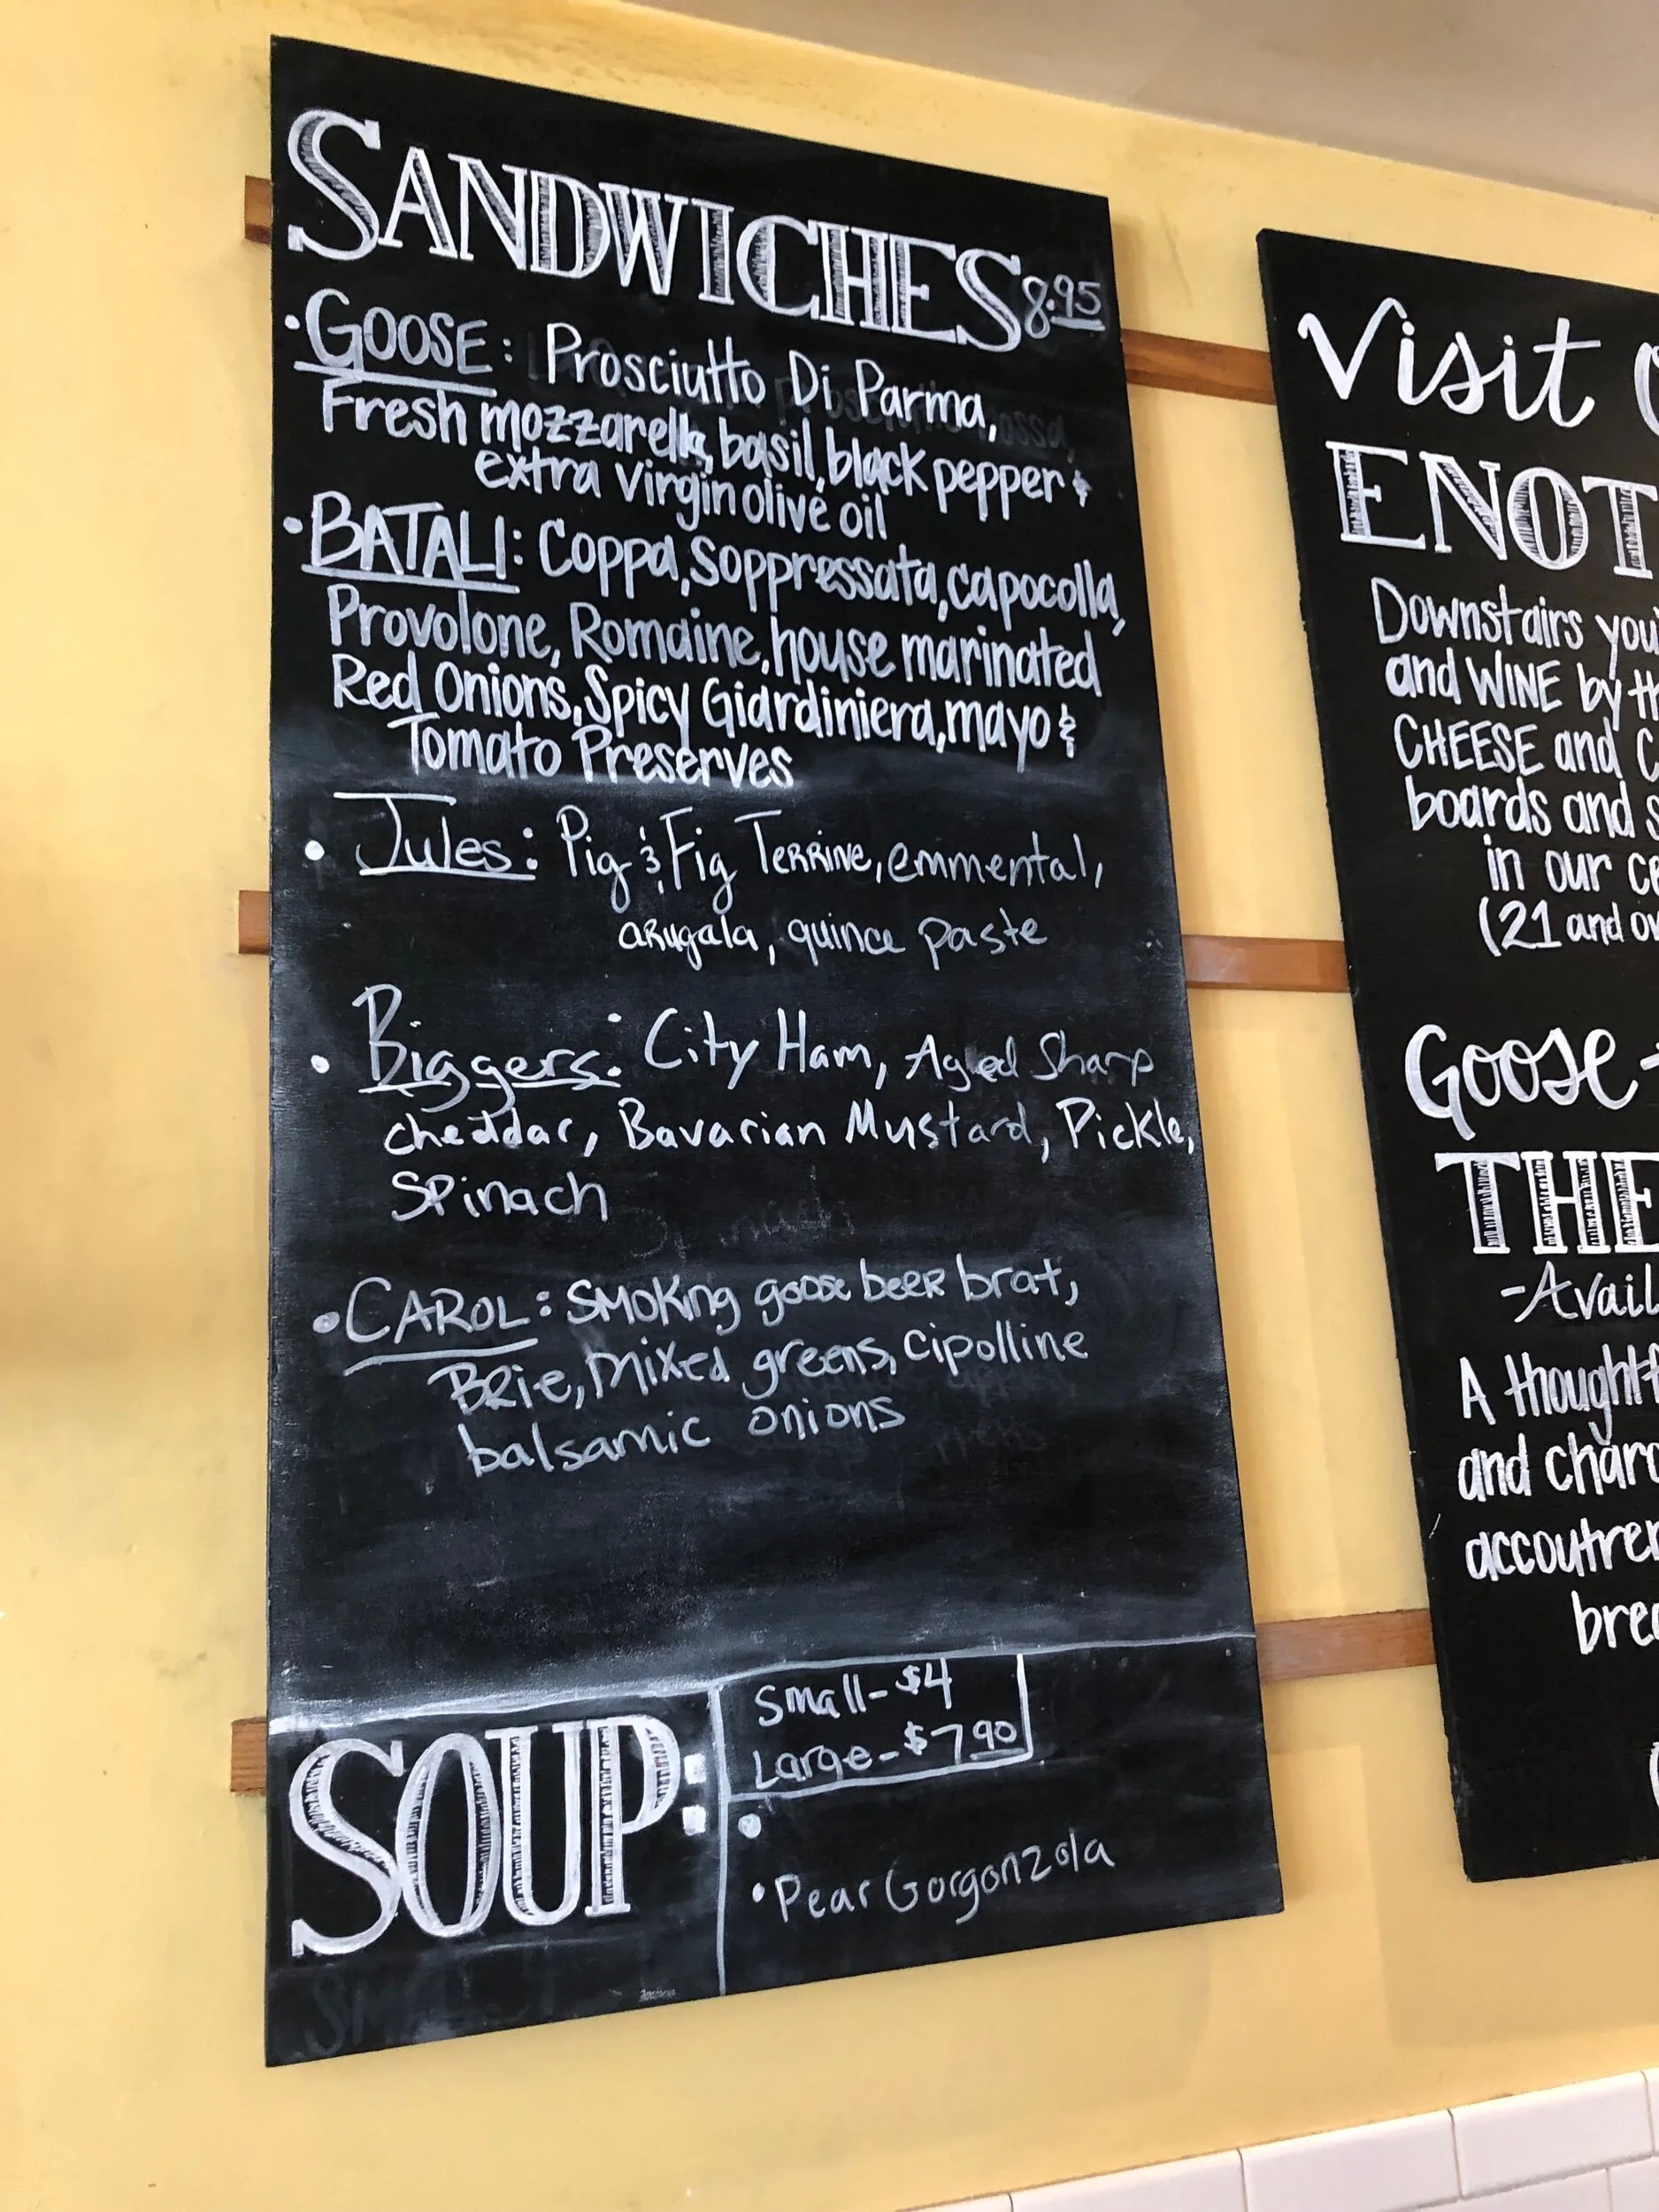 SANDWICHES 8.95
• GOOSE: Prosciutto Di Parma,
Fresh mozzarella, basil, black pepper &
extra virgin olive oil
• BATALI: Coppa, Soppressata, capocolla,
Provolone, Romaine, house marinated
Red Onions, Spicy Giardiniera, mayo &
Tomato Preserves
• Jules: Pig & Fig Terrine, emmental,
arugala, quince paste
• Biggers: City Ham, Aged Sharp
cheddar, Bavarian Mustard, Pickle,
Spinach
• CAROL: Smoking goose beer brat,
Brie, mixed greens, cipolline
balsamic onions
SOUP:
Small - $4
Large - $7.90
•
• Pear Gorgonzola
Visit
ENOT
Downstairs you
and WINE by th
CHEESE and C
boards and s
in our ce
(21 and ov
Goose-
THE
- Avail
A thoughtf
and charc
accoutrem
brea